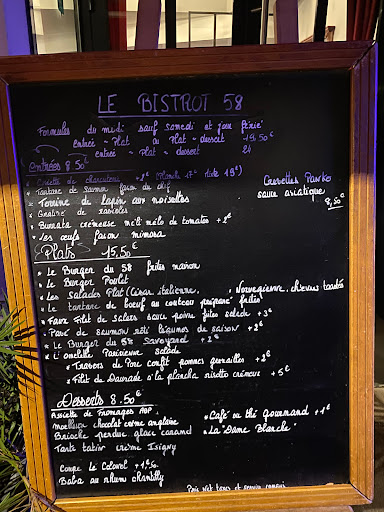 LE BISTROT 58
Formules du midi sauf samedi et jour férié
Entrée - Plat ou Plat - dessert 19,50€
Entrée - Plat - dessert 24
Entrées 8.50€
de charcuterie +2€
Tartare de Saumon façon du chef
Crevettes Panko
sauce asiatique
8,50€
Terrine de lapin aux noisettes
Gratiné de ravioles
Burrata crémeuse méli mélo de tomates +2€
Les œufs façon mimosa
Plats 15,50€
Le Burger du 58 frites maison
Le Burger Poulet
Les Salades Plat (César, italienne, Norvégienne, chèvres toastés
Le tartare de bœuf au couteau préparé frites
Faux Filet de Salers sauce poivre frites salade +3€
Pavé de saumon rôti légumes de saison +2€
Le Burger du 58 Savoyard +2€
L'omelette Parisienne salade
Travers de Porc confit pommes grenailles +2€
Filet de Daurade a la plancha risotto crémeux +5€
Desserts 8.50€
Assiette de Fromages AOP
Café ou thé gourmand +1€
Moelleux chocolat crème anglaise
La "Dame Blanche"
Brioche perdue glace caramel
Tarte tatin crème Isigny
Coupe Le Colonel +1€50
Baba au rhum chantilly
Prix net taxes et service compris